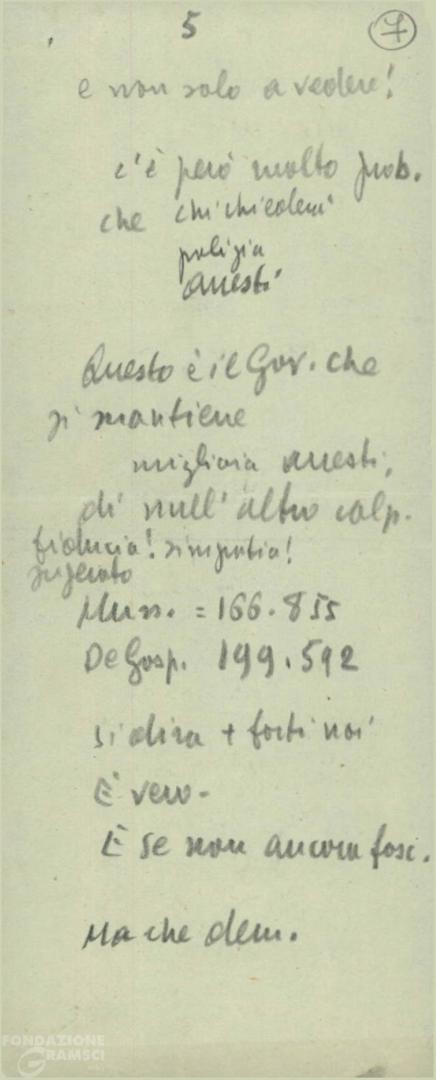 5
7
e non solo a vedere!
c'è però molto prob.
che chi chiederà
polizia
arresti
Questo è il Gov. che
si mantiene
migliaia arresti,
di null'altro colp.
fiducia! simpatia!
superato
Muss. = 166.855
De Gasp. 199.592
si dirà + forti noi
È vero -
E se non ancora fasc.
Ma che dem.
FONDAZIONE
GRAMSCI